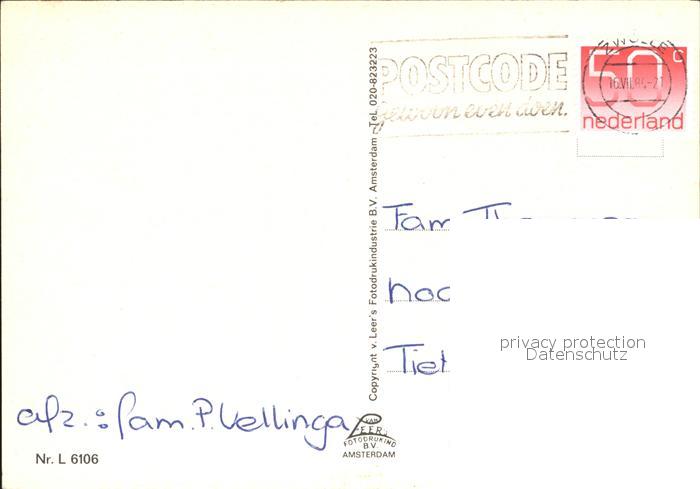 POSTCODE
gewoon even doen.
ZWOLLE
16.VII.84-21
50 C
nederland
Copyright v. Leer's Fotodrukindustrie B.V. Amsterdam - Tel. 020-823223
Fam
privacy protection
Datenschutz
afz.: fam. P. Vellinga
VAN
LEER'S
FOTODRUKIND
B.V.
AMSTERDAM
Nr. L 6106